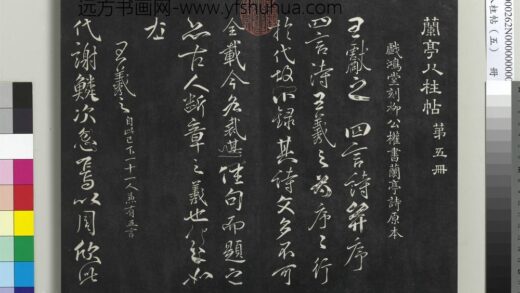 远方书画网-www.yfshuhua.com
蘭亭八柱帖 第五冊
戲鴻堂刻柳公權書蘭亭詩原本
王獻之四言詩并序
四言詩王羲之爲序序行
於代故不錄其詩文多不可
全載今各裁其佳句而題之
亦古人斷章之義也 如
左
王羲之 自此已下十一人兼有五言
代謝鱗次忽焉以周欣此
000262N00000000
柱帖（五） 册